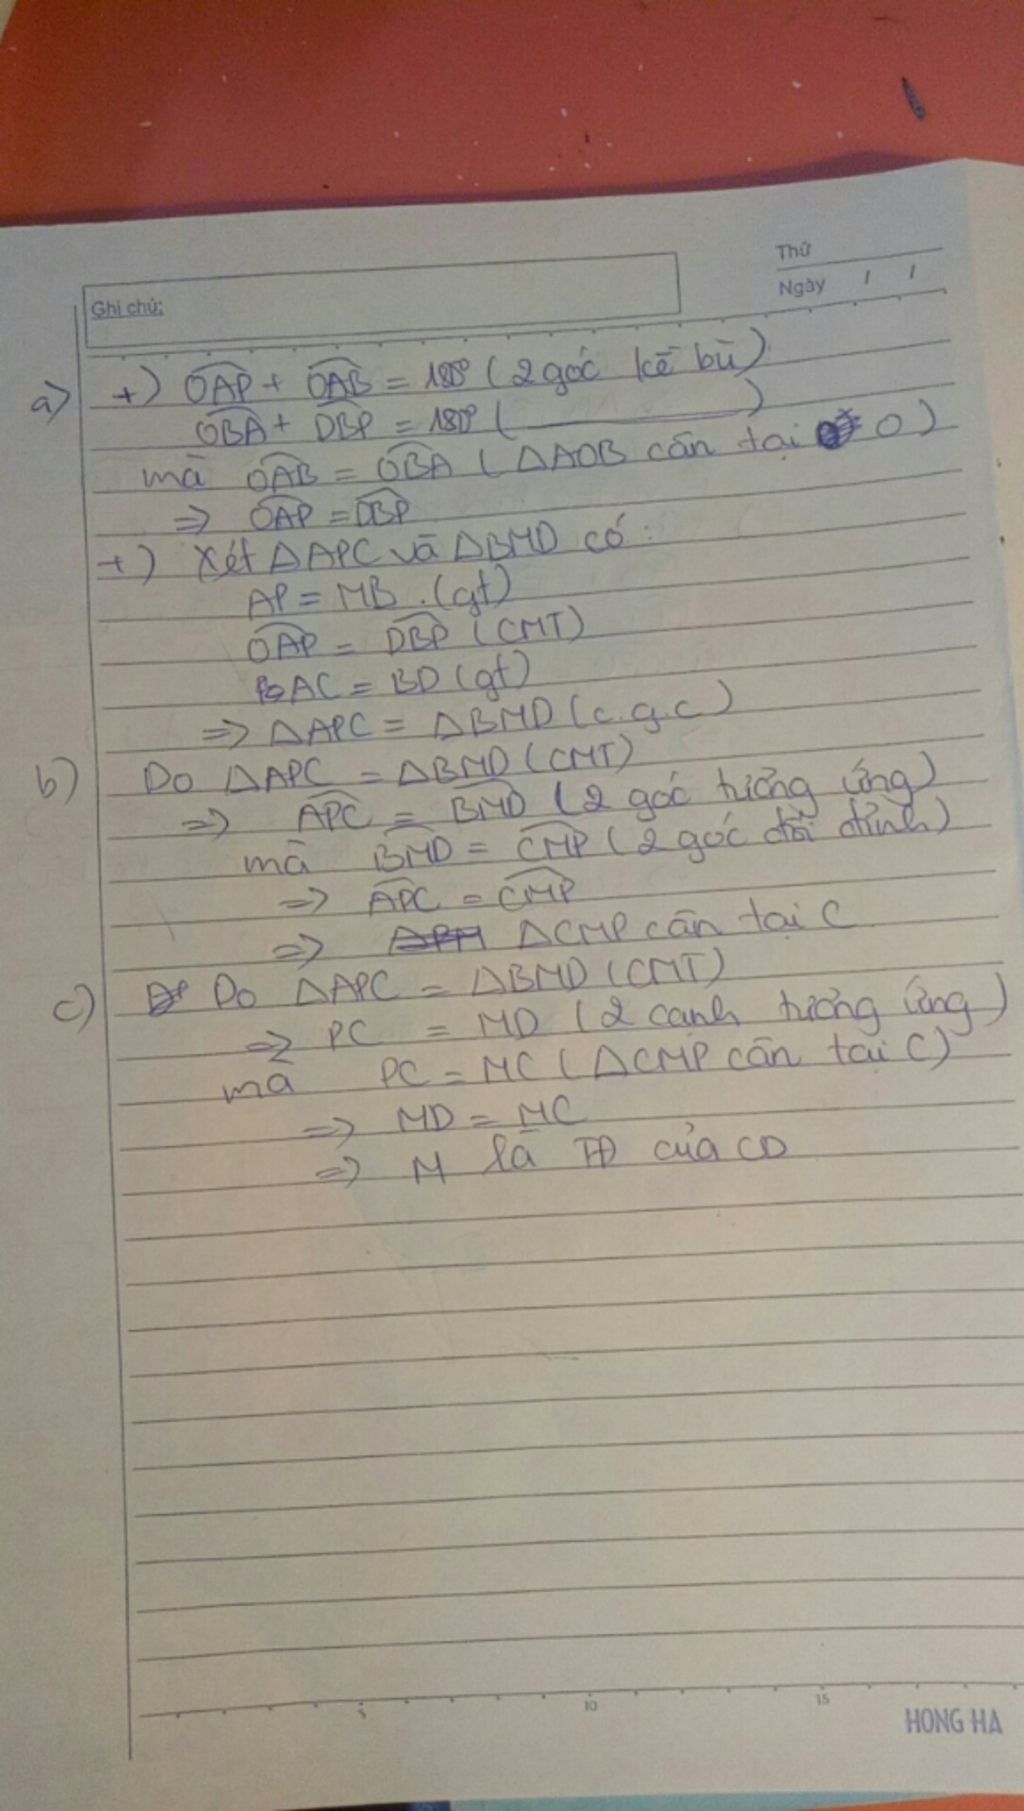 Thứ
Ghi chú:
Ngày / /
a) +) OAP + OAB = 180° (2 góc kề bù)
OBA + DBP = 180° ( ______ )
mà OAB = OBA (ΔAOB cân tại O)
=> OAP = DBP
+) Xét ΔAPC và ΔBMD có:
AP = MB (gt)
OAP = DBP (CMT)
AC = BD (gt)
=> ΔAPC = ΔBMD (c.g.c)
b) Do ΔAPC = ΔBMD (CMT)
=> APC = BMD (2 góc tương ứng)
mà BMD = CMP (2 góc đối đỉnh)
=> APC = CMP
=> ΔCMP cân tại C
c) Do ΔAPC = ΔBMD (CMT)
=> PC = MD (2 cạnh tương ứng)
mà PC = MC (ΔCMP cân tại C)
=> MD = MC
=> M là TĐ của CD
5 10 15
HONG HA